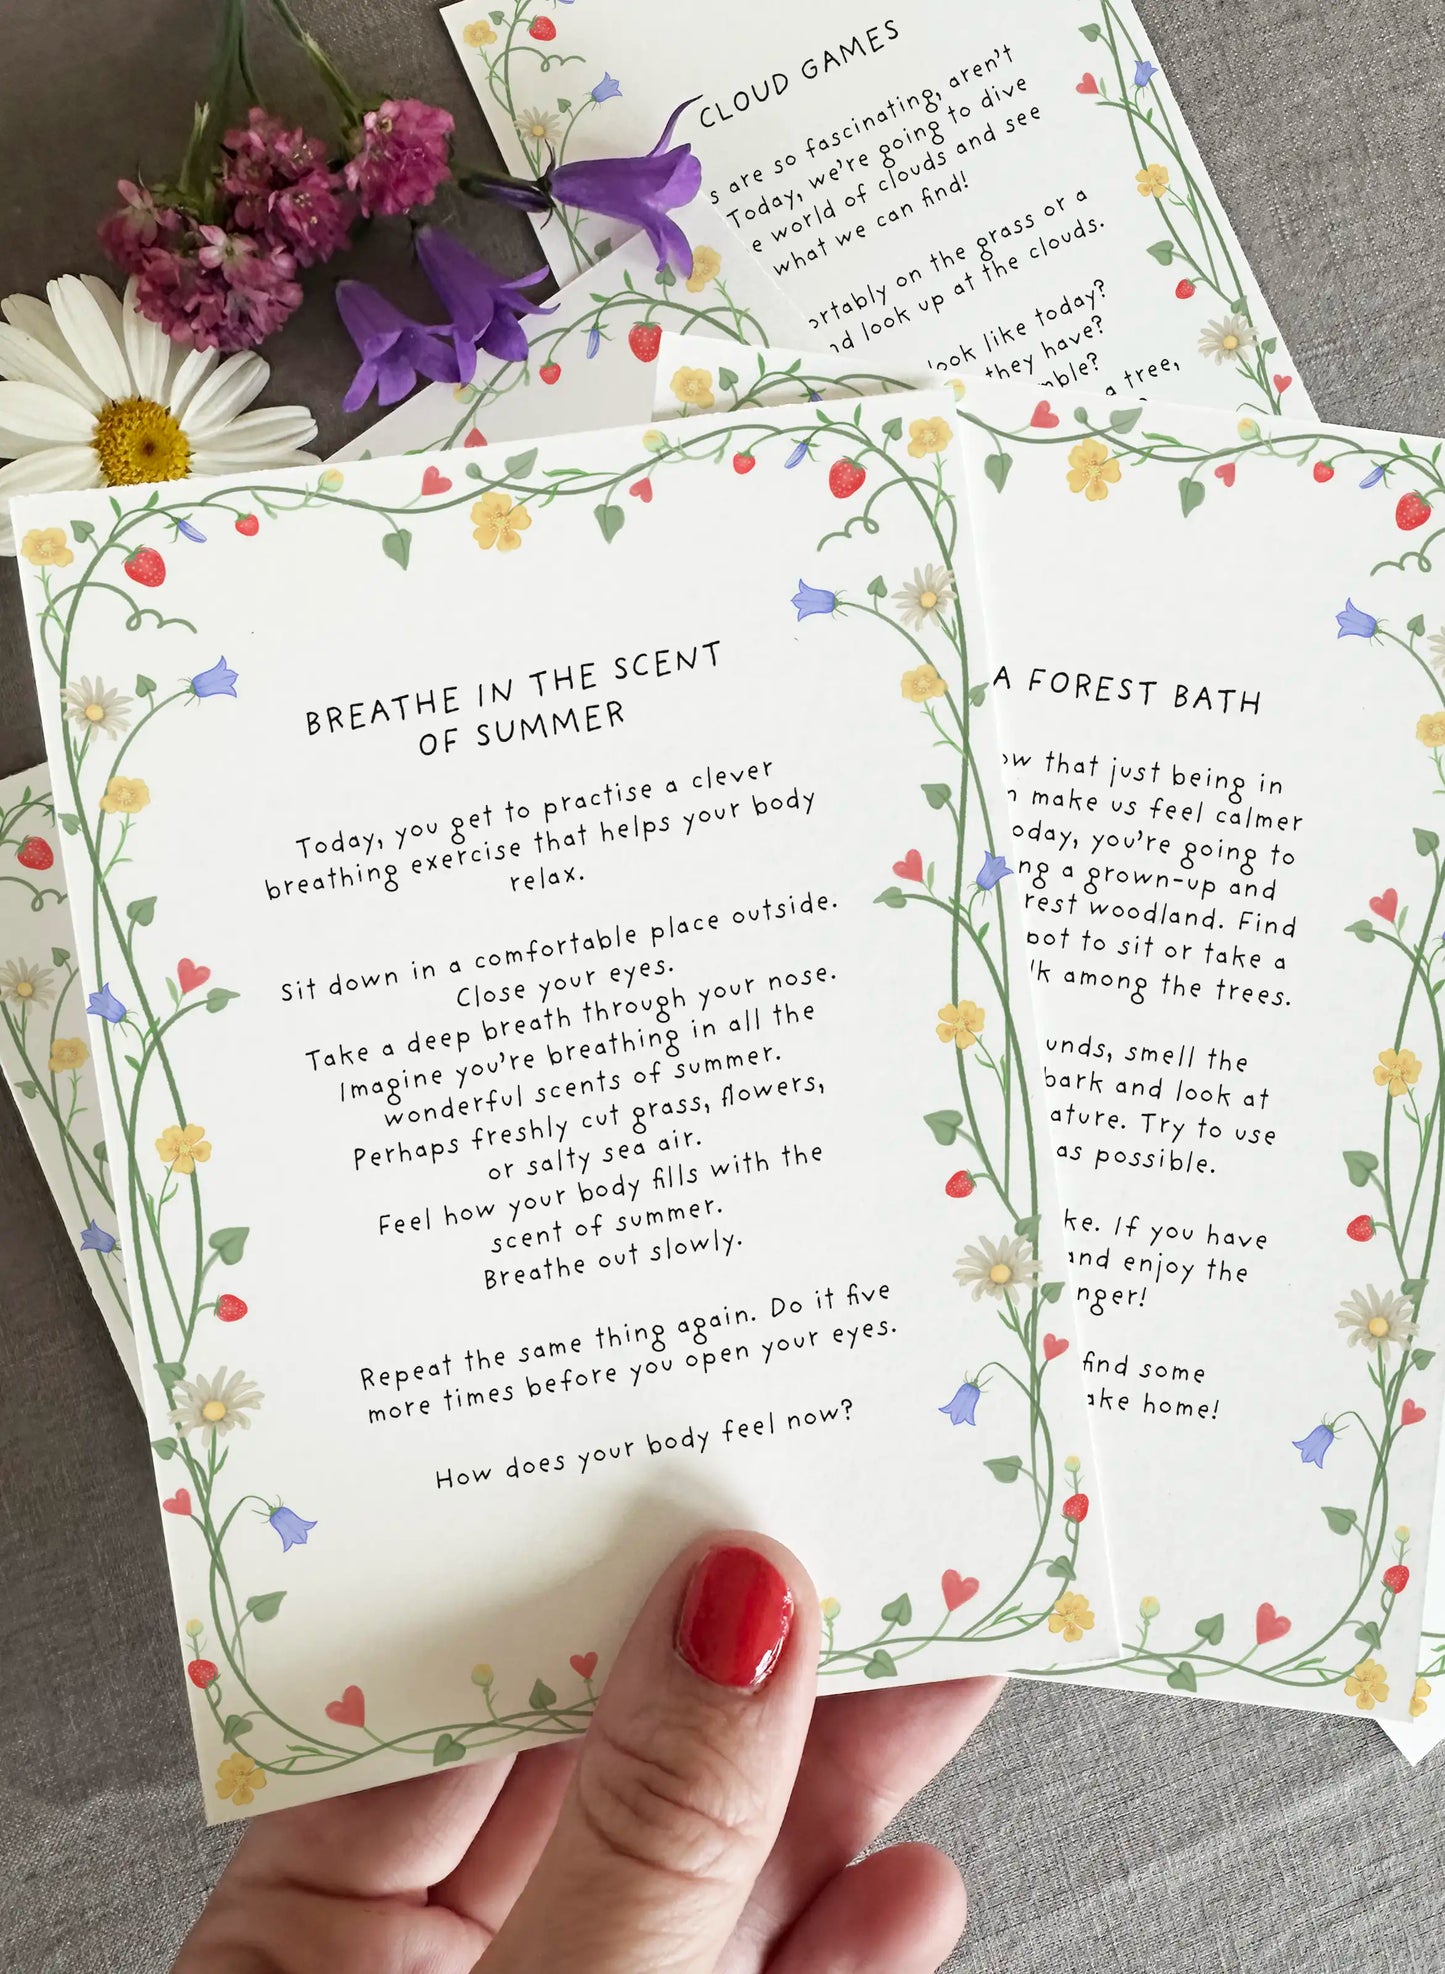 CLOUD GAMES
are so fascinating, aren't
Today, we're going to dive
world of clouds and see
what we can find!
on the grass or a
look up at the clouds.
look like today?
they have?
a tree,
BREATHE IN THE SCENT
OF SUMMER
Today, you get to practise a clever
breathing exercise that helps your body
relax.
Sit down in a comfortable place outside.
Close your eyes.
Take a deep breath through your nose.
Imagine you're breathing in all the
wonderful scents of summer.
Perhaps freshly cut grass, flowers,
or salty sea air.
Feel how your body fills with the
scent of summer.
Breathe out slowly.
Repeat the same thing again. Do it five
more times before you open your eyes.
How does your body feel now?
A FOREST BATH
that just being in
make us feel calmer
you're going to
a grown-up and
woodland. Find
to sit or take a
among the trees.
smell the
bark and look at
Try to use
as possible.
If you have
and enjoy the
find some
home!